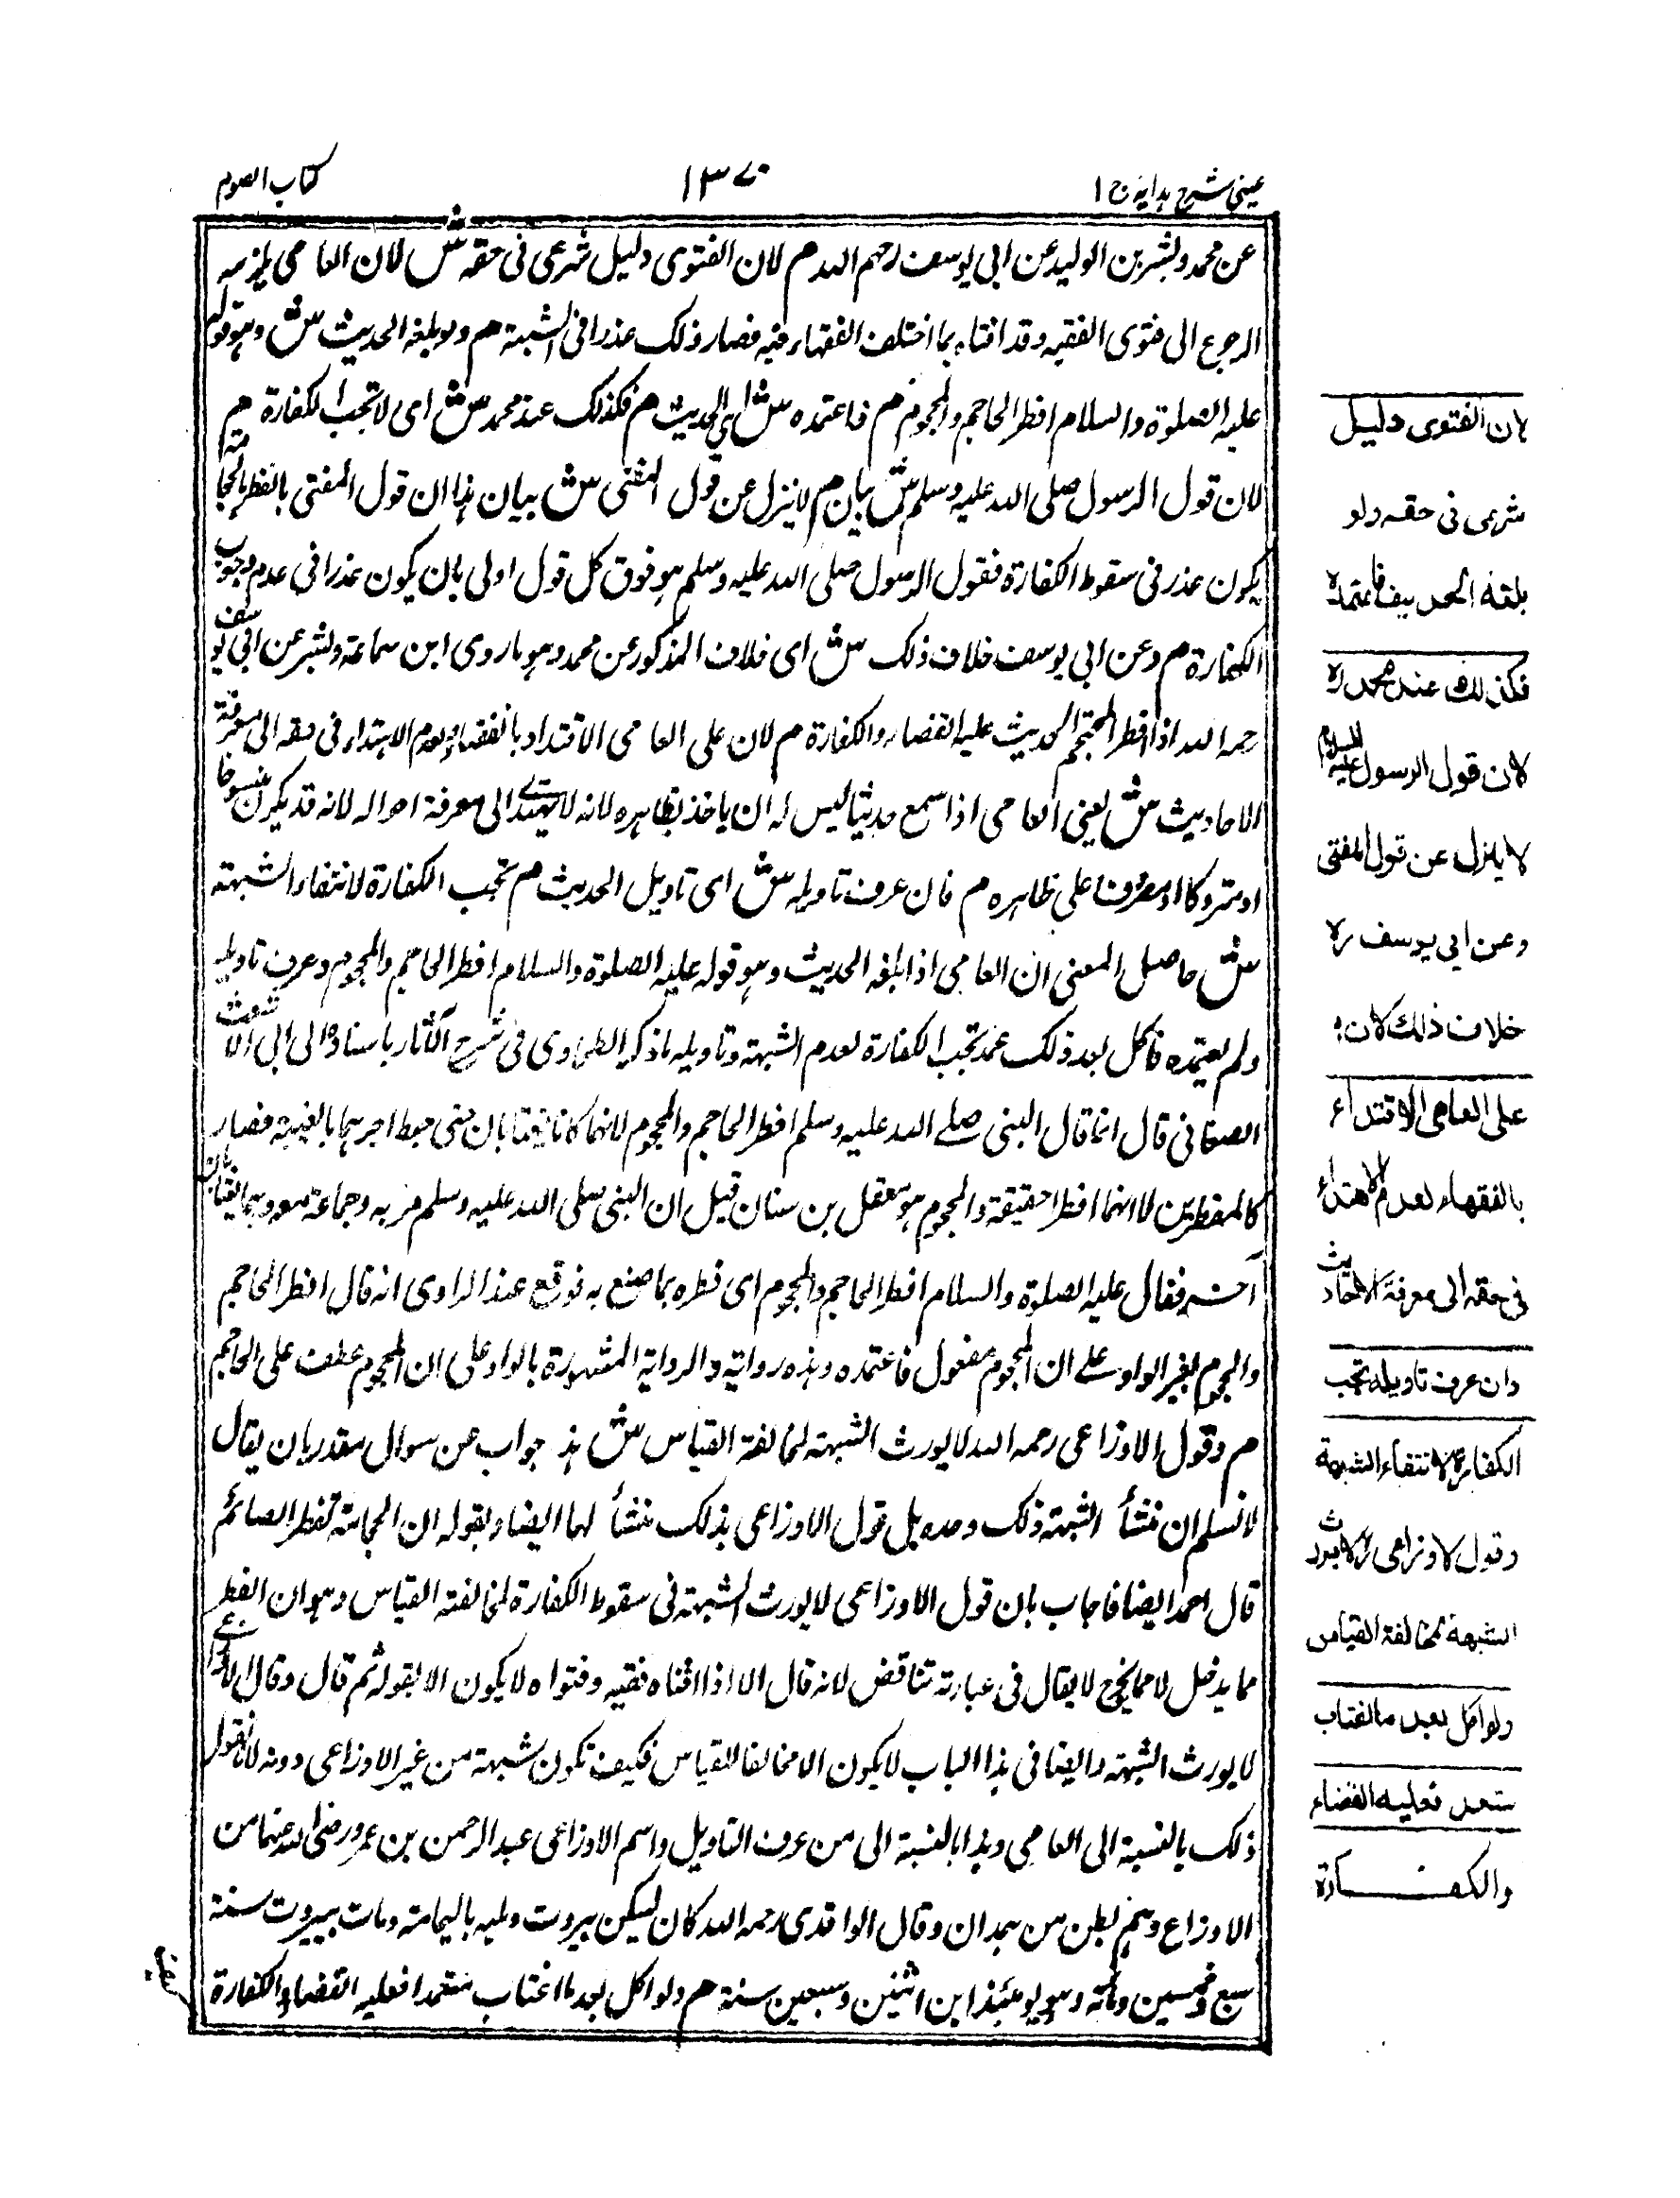 عینی شرح ہدایہ ج ا
۱۳۷۰
کتاب الصوم
عن محمد وبشر بن الولید عن ابی یوسف رحمہم اللہ م لان الفتوی دلیل شرعی فی حقہ ش لان العامی یلزمہ
الرجوع الی فتوی الفقیہ وقد افتاہ بما اختلف الفقہاء فیہ فصار ذلک عذرا فی الشبہۃ م ولو بلغہ الحدیث ش وہو قولہ
علیہ الصلوۃ والسلام افطر الحاجم والمحجوم م فاعتمدہ ش ای الحدیث م فکذلک عند محمد ش ای لا تجب الکفارۃ م
لان قول الرسول صلی اللہ علیہ وسلم ش بیان م لا ینزل عن قول المفتی ش بیان ہذا ان قول المفتی بالفطر بالحجامۃ
یکون عذر فی سقوط الکفارۃ فقول الرسول صلی اللہ علیہ وسلم ہو فوق کل قول اولی بان یکون عذرا فی عدم وجوب
الکفارۃ م وعن ابی یوسف خلاف ذلک ش ای خلاف المذکور عن محمد وہو ما روی ابن سماعۃ وبشر عن ابی یوسف
رحمہ اللہ اذا افطر المحتجم الحدیث علیہ القضاء والکفارۃ م لان علی العامی الاقتداء بالفقہاء لعدم الاہتداء فی حقہ الی معرفۃ
الاحادیث ش یعنی العامی اذا سمع حدیثا لیس لہ ان یاخذ بظاہرہ لانہ لا یہتدی الی معرفۃ احوالہ لانہ قد یکون منسوخا
او متروکا او مصروفا علی ظاہرہ م فان عرف تاویلہ ش ای تاویل الحدیث م تجب الکفارۃ لانتفاء الشبہۃ
ش حاصل المعنی ان العامی اذا بلغہ الحدیث وہو قولہ علیہ الصلوۃ والسلام افطر الحاجم والمحجوم وعرف تاویلہ
ولم یعتمدہ فاکل بعد ذلک عمد تجب الکفارۃ لعدم الشبہۃ وتاویلہ ما ذکرہ الطحاوی فی شرح الآثار باسنادہ الی ابی الاشعث
الصنعانی قال انما قال النبی صلے اللہ علیہ وسلم افطر الحاجم والمحجوم لانہما کانا یغتابان حتی حبط اجرہما بالغیبۃ فصار
کالمفطرین لا انہما افطرا حقیقۃ والمحجوم ہو معقل بن سنان قیل ان النبی صلی اللہ علیہ وسلم مر بہ وجماعۃ معہ وہما یغتابان
آخر فقال علیہ الصلوۃ والسلام افطر الحاجم والمحجوم ای فطرہ بما صنع بہ فوقع عند الراوی انہ قال افطر الحاجم
والمحجوم بغیر الواو علے ان المحجوم مفعول فاعتمدہ وہذہ روایۃ والروایۃ المشہورۃ بالواو علی ان المحجوم عطف علی الحاجم
م وقول الاوزاعی رحمہ اللہ لا یورث الشبہۃ لمخالفۃ القیاس ش ہذ جواب عن سوال مقدر بان یقال
لا نسلم ان منشأ الشبہۃ ذلک وحدہ بل قول الاوزاعی بذلک منشأ لہا ایضا وبقولہ ان الحجامۃ تفطر الصائم
قال احمد ایضا فاجاب بان قول الاوزاعی لا یورث الشبہۃ فی سقوط الکفارۃ لمخالفۃ القیاس وہو ان الفطر
مما یدخل لا مما یخرج لا یقال فی عبارتہ تناقض لانہ قال الا اذا افتاہ فقیہ وفتواہ لا یکون الا بقولہ ثم قال وقال الاوزاعی
لا یورث الشبہۃ وایضا فی ہذا الباب لا یکون الا مخالفا للقیاس فکیف تکون شبہۃ من غیر الاوزاعی دونہ لانا نقول
ذلک بالنسبۃ الی العامی وہذا بالنسبۃ الی من عرف التاویل واسم الاوزاعی عبد الرحمن بن عمرو رضی اللہ عنہما من
الاوزاع وہم بطن من ہمدان وقال الواقدی رحمہ اللہ کان یسکن بیروت وملیہ بالیمامۃ ومات ببیروت سنۃ
سبع وخمسین ومائۃ وہو یومئذ ابن اثنین وسبعین سنۃ م ولو اکل بعد ما اغتاب متعمدا فعلیہ القضاء والکفارۃ
لان الفتوی دلیل
شرعی فی حقہ ولو
بلغہ الحدیث فاعتمدہ
فکذلک عند محمد رہ
لان قول الرسول علیہ السلام
لا ینزل عن قول المفتی
وعن ابی یوسف رہ
خلاف ذلک لان
علی العامی الاقتداء
بالفقہاء لعدم الاہتداء
فی حقہ الی معرفۃ الاحادیث
وان عرف تاویلہ تجب
الکفارۃ لانتفاء الشبہۃ
وقول الاوزاعی رہ لا یورث
الشبہۃ لمخالفۃ القیاس
ولو اکل بعد ما اغتاب
متعمد فعلیہ القضاء
والکفارۃ